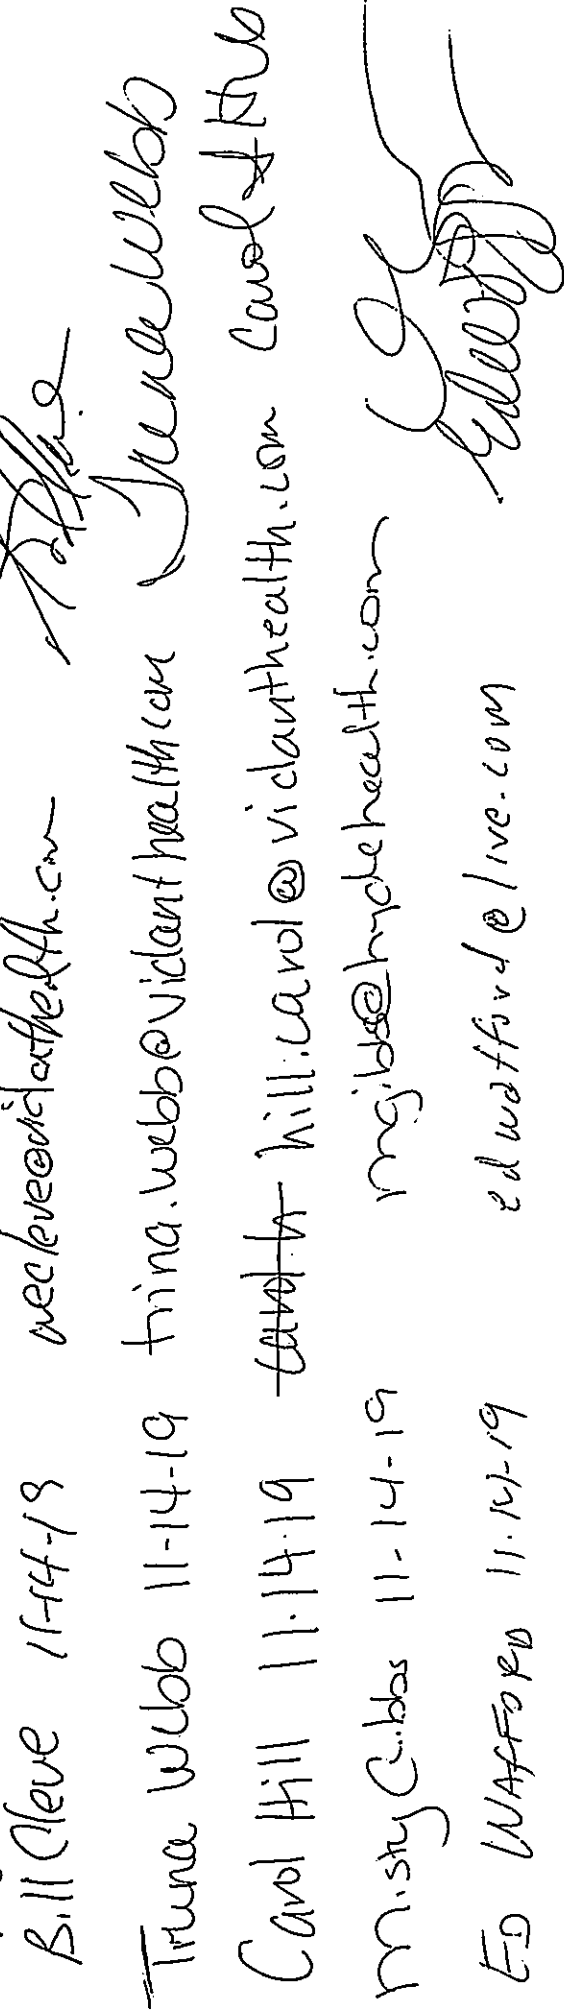 Bill Cleve 11-14-19 wecleve@vidanthealth.com
Trena Webb 11-14-19 trina.webb@vidanthealth.com Trena Webb
Carol Hill 11.14.19 hill.carol@vidanthealth.com Carol H Hill
Misty Gibbs 11-14-19 mgibbs@hydehealth.com
ED WAFFORD 11.14-19 edwafford@live.com